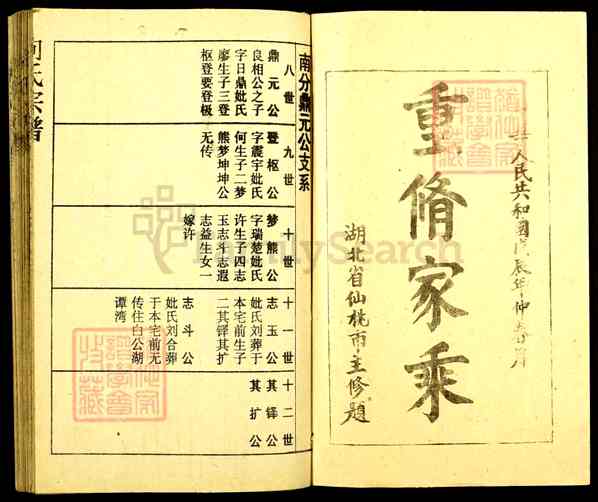 人民共和國戊辰年仲春月
重脩家乘
湖北省仙桃市主修題
南分鼎元公支系
八世
鼎元公
良相公之子
字日鼎妣氏
廖生子三登
枢登要登极
九世
登枢公
字震宇妣氏
何生子二梦
熊梦坤坤公
无传
十世
梦熊公
字瑞楚妣氏
许生子四志
玉志斗志遐
志益生女一
嫁许
十一世
志玉公
妣氏刘葬于
本宅前生子
二其铎其扩
志斗公
妣氏刘合葬
于本宅前无
传住白公湖
谭湾
十二世
其铎公
其扩公
氏宗谱
犹他家谱学会收藏
犹他家谱学会收藏
FamilySearch